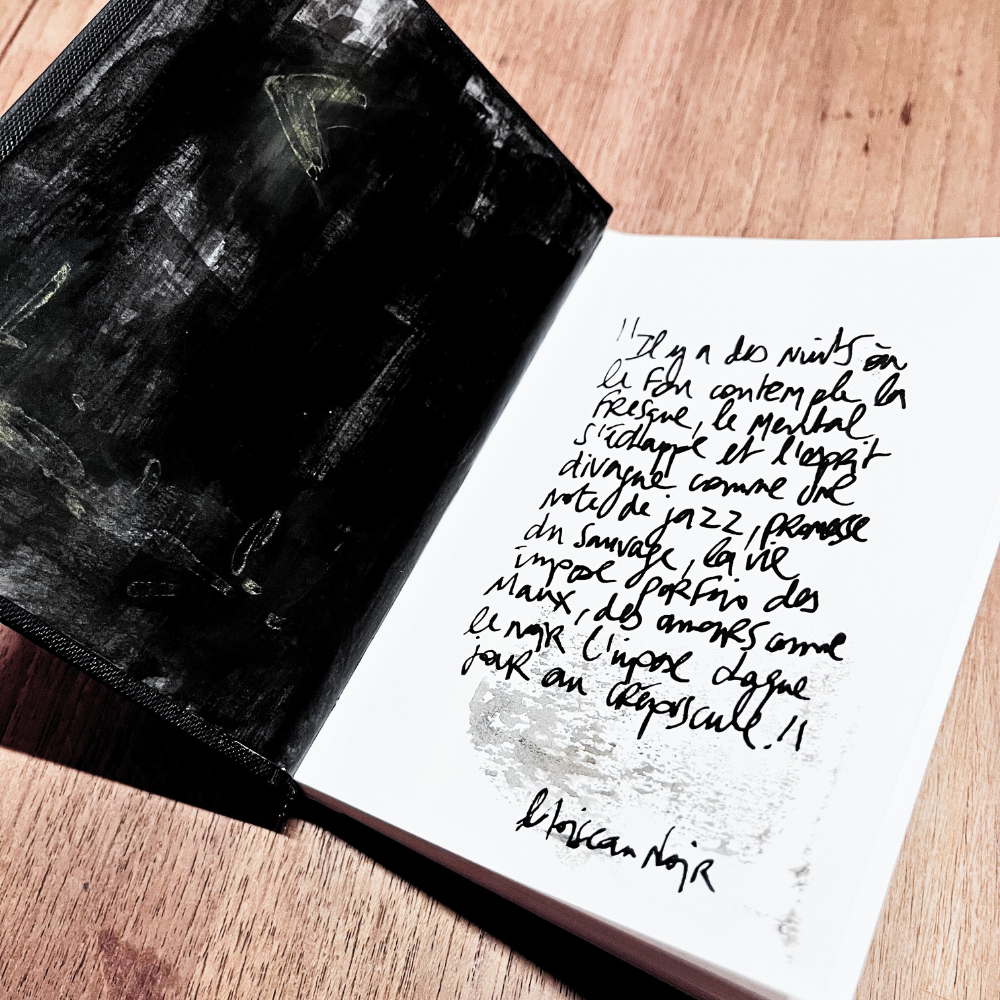 "Il y a des nuits où
le fou contemple la
fresque, le mental
s'échappe et l'esprit
divague comme une
note de jazz, promesse
du sauvage, la vie
impose parfois des
maux, des amours comme
le noir l'impose chaque
jour au crépuscule."
le toiscan Noir